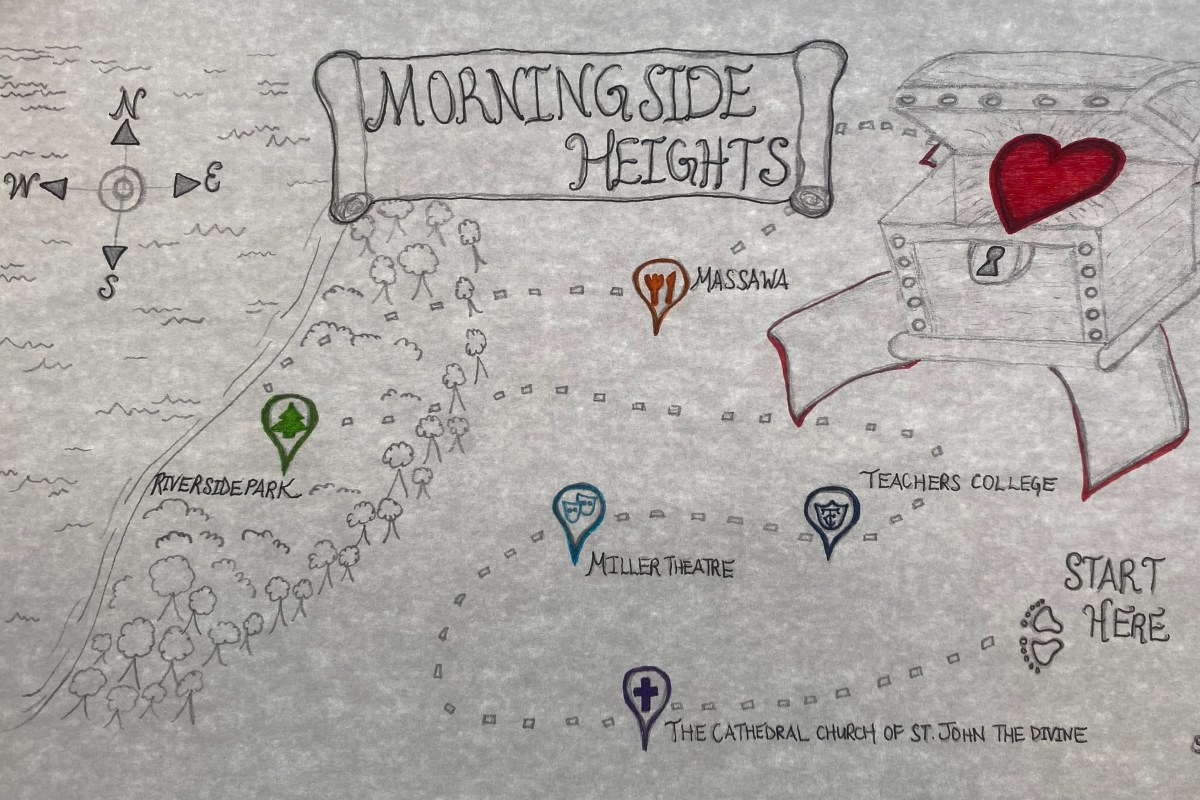 N
W E
S
MORNINGSIDE
HEIGHTS
MASSAWA
RIVERSIDE PARK
TEACHERS COLLEGE
TC
MILLER THEATRE
START
HERE
THE CATHEDRAL CHURCH OF ST. JOHN THE DIVINE